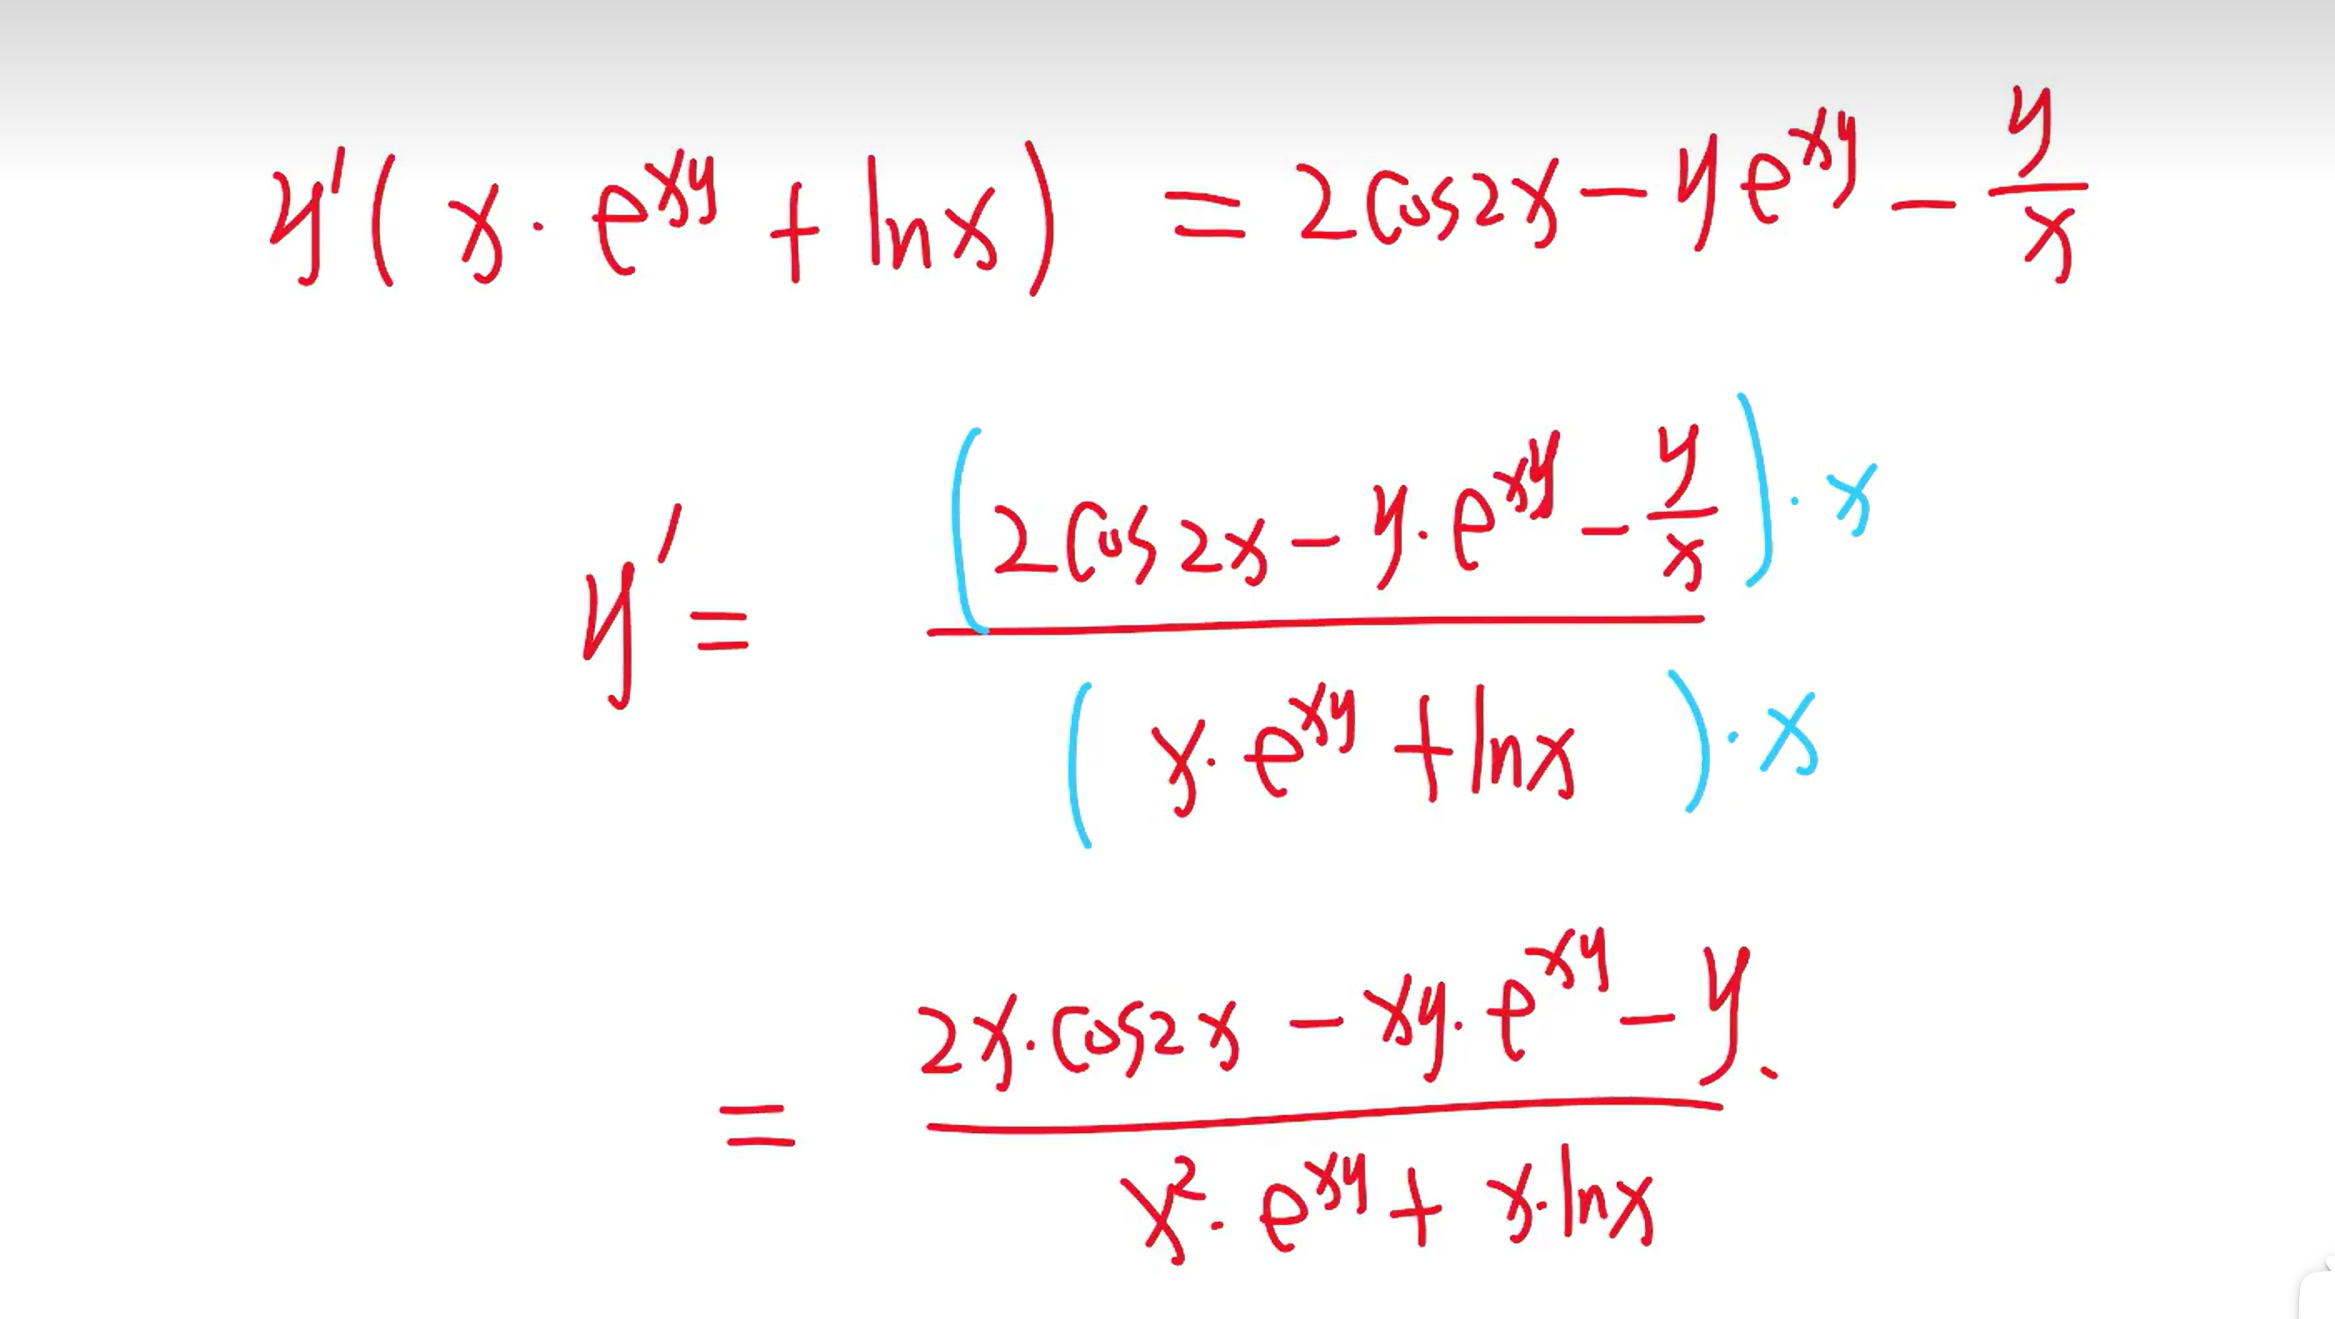 y'(x·e^{xy} + ln x) = 2cos2x − ye^{xy} − \frac{y}{x}
y' = \frac{(2cos2x − y·e^{xy} − \frac{y}{x})·x}{(x·e^{xy} + ln x)·x}
= \frac{2x·cos2x − xy·e^{xy} − y.}{x^2·e^{xy} + x·ln x}